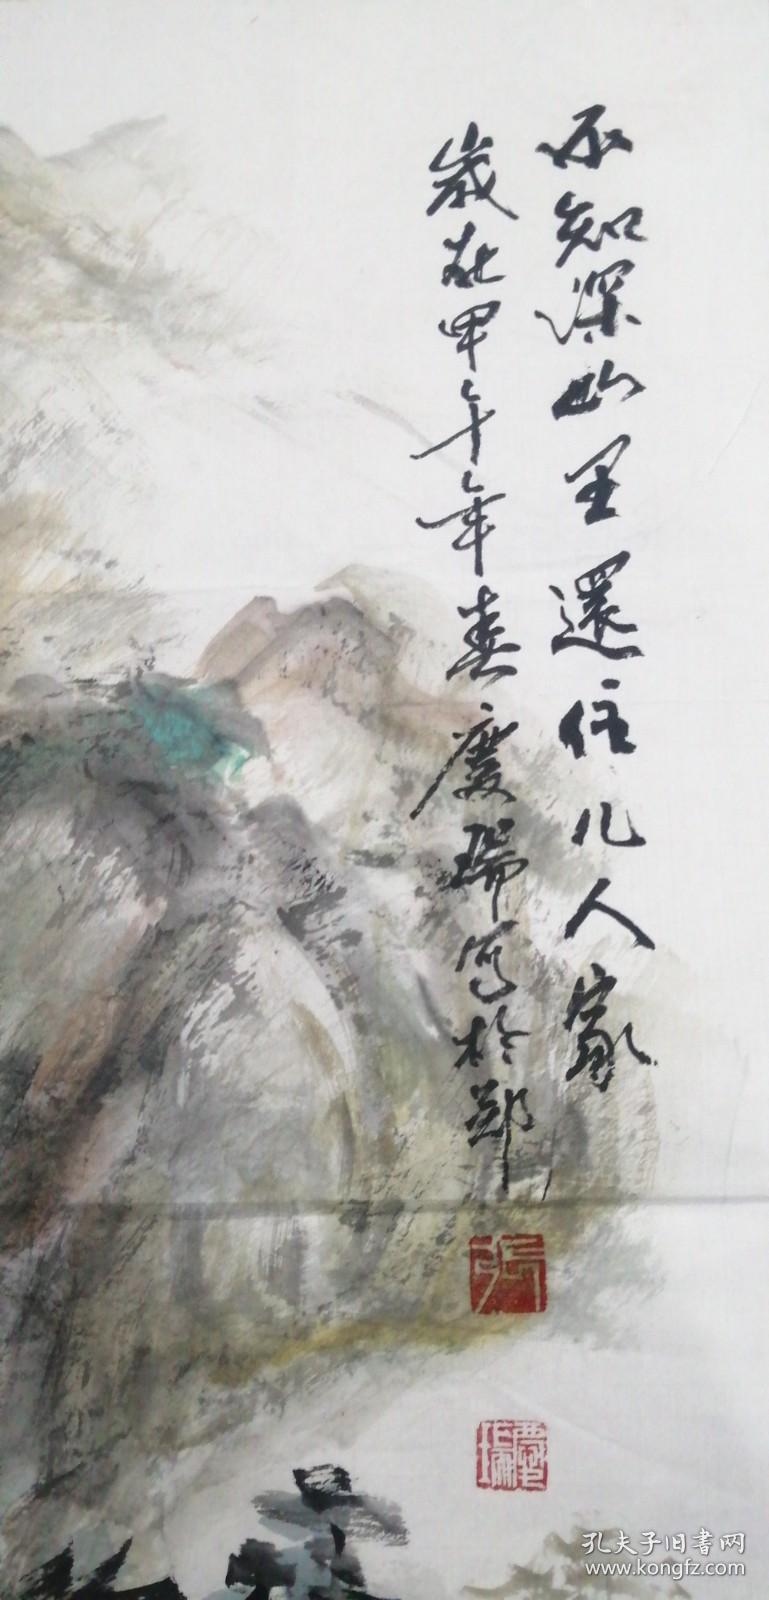 不知深山里還住几人家
歲在甲午年春慶瑞写於鄭
張
慶瑞
孔夫子旧書网
www.kongfz.com